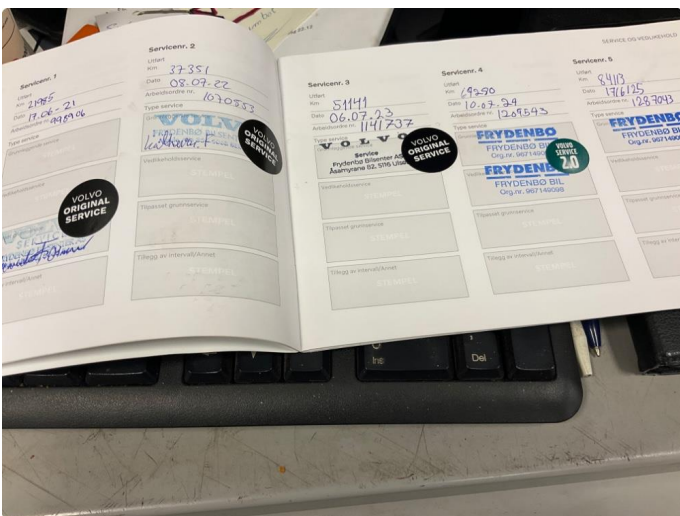 SERVICE OG VEDLIKEHOLD
Servicenr. 1
Utført
Km 21985
Dato 17.06-21
Arbeidsordre nr. 998906
Type service
VOLVO
ORIGINAL
SERVICE
Servicenr. 2
Utført
Km 37351
Dato 08.07-22
Arbeidsordre nr. 1070553
Type service
VOLVO
FRYDENBØ BILSENTER
VOLVO
ORIGINAL
SERVICE
Vedlikeholdsservice
STEMPEL
Tilpasset grunnservice
STEMPEL
Tillegg av intervall/Annet
STEMPEL
Servicenr. 3
Utført
Km 51141
Dato 06.07.23
Arbeidsordre nr. 1141737
Type service
VOLVO
Service
Frydenbø Bilsenter AS
Åsamyrane 82, 5116 Ulset
VOLVO
ORIGINAL
SERVICE
Vedlikeholdsservice
Tilpasset grunnservice
STEMPEL
Tillegg av intervall/Annet
STEMPEL
Servicenr. 4
Utført
Km 69290
Dato 10.07.24
Arbeidsordre nr. 1209543
Type service
FRYDENBØ
FRYDENBØ BIL
Org.nr. 967149098
VOLVO
SERVICE
2.0
FRYDENBØ
FRYDENBØ BIL
Org.nr. 967149098
Tilpasset grunnservice
STEMPEL
Tillegg av intervall/Annet
STEMPEL
Servicenr. 5
Utført
Km 84113
Dato 17/6/25
Arbeidsordre nr. 1287043
Type service
FRYDENBØ
FRYDENBØ
Vedlikeholdsservice
Tilpasset grunnservice
Ins
Del